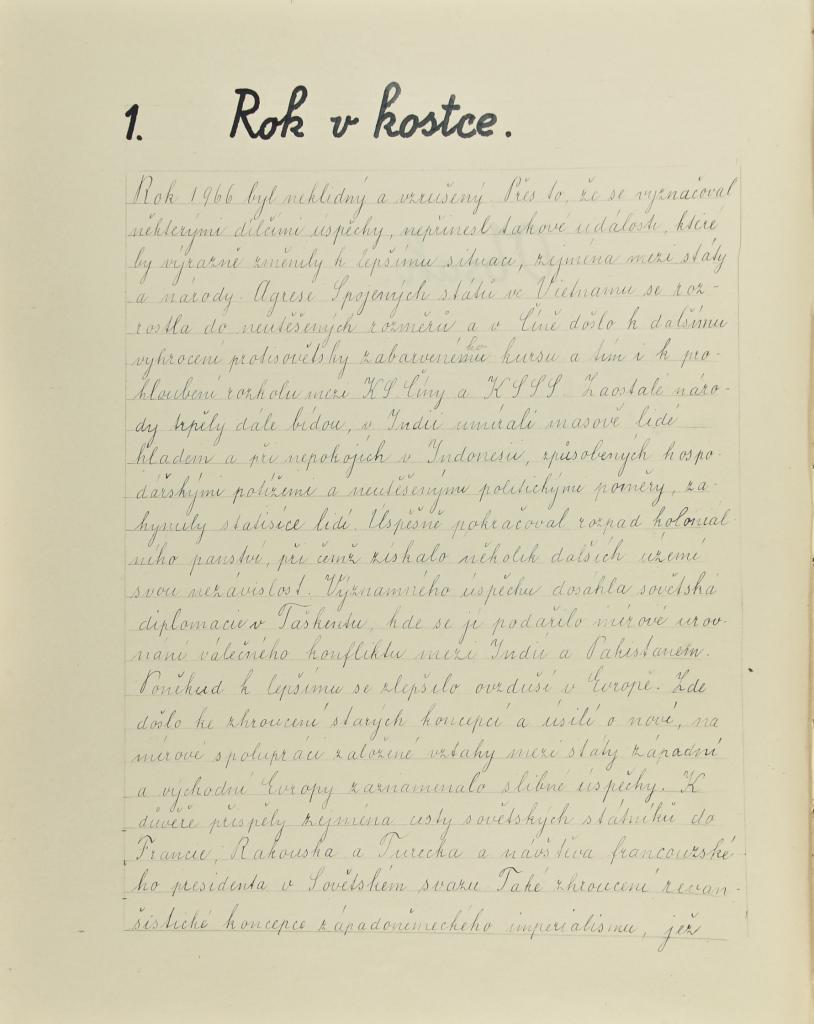 1. Rok v kostce.
Rok 1966 byl neklidný a vzrušený. Přes to, že se vyznačoval
některými dílčími úspěchy, nepřinesl takové události, které
by výrazně změnily k lepšímu situaci, zejména mezi státy
a národy. Agrese Spojených států ve Vietnamu se roz-
rostla do neutěšených rozměrů a v Číně došlo k dalšímu
vyhrocení protisovětsky zabarveného kursu a tím i k pro-
hloubení rozkolu mezi KS Číny a KSSS. Zaostalé náro-
dy trpěly dále bídou, v Indii umírali masově lidé
hladem a při nepokojích v Indonesii, způsobených hospo-
dářskými potížemi a neutěšenými politickými poměry, za-
hynuly statisíce lidí. Úspěšně pokračoval rozpad koloniál-
ního panství, při čemž získalo několik dalších území
svou nezávislost. Významného úspěchu dosáhla sovětská
diplomacie v Taškentu, kde se jí podařilo mírové urov-
nání válečného konfliktu mezi Indií a Pakistanem.
Poněkud k lepšímu se zlepšilo ovzduší v Evropě. Zde
došlo ke zhroucení starých koncepcí a úsilí o nové, na
mírové spolupráci založené vztahy mezi státy západní
a východní Evropy zaznamenalo slibné úspěchy. K
důvěře přispěly zejména cesty sovětských státníků do
Francie, Rakouska a Turecka a návštěva francouzské-
ho presidenta v Sovětském svazu. Také zhroucení revan-
šistické koncepce západoněmeckého imperialismu, jež